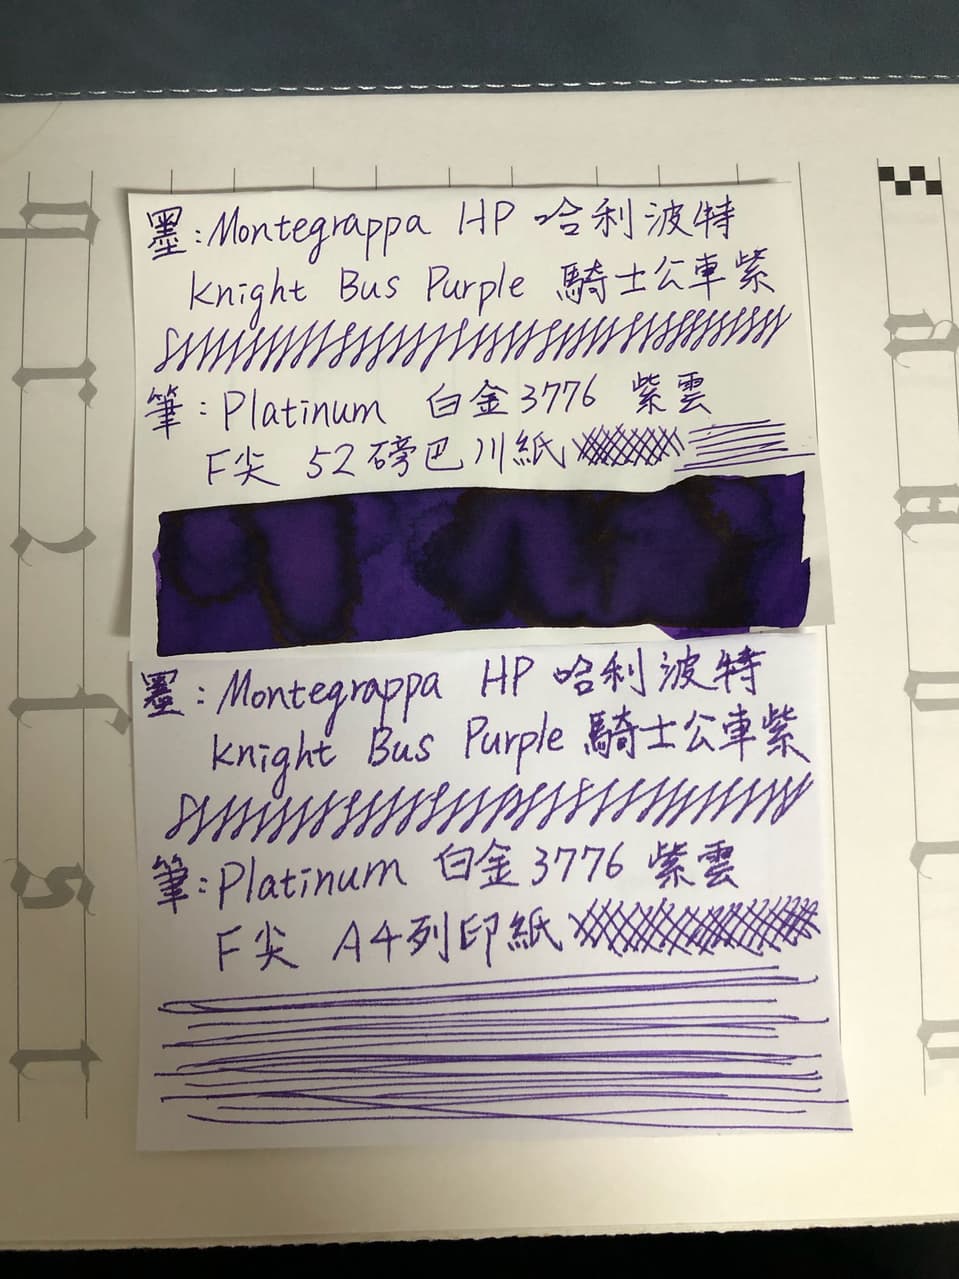 墨:Montegrappa HP 哈利波特
Knight Bus Purple 騎士公車紫
筆:Platinum 白金3776 紫雲
F尖 52磅巴川紙
墨:Montegrappa HP 哈利波特
Knight Bus Purple 騎士公車紫
筆:Platinum 白金3776 紫雲
F尖 A4列印紙